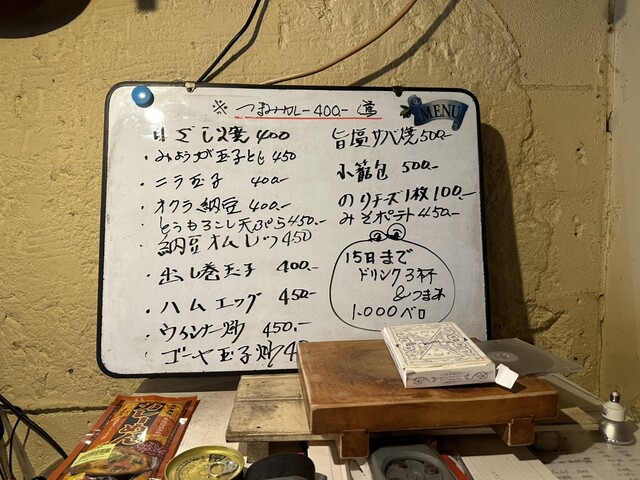 ※ つまみカレー400.-
MENU
めざし焼 400
・みょうが玉子とじ 450
・ニラ玉子 400.-
・オクラ納豆 400.-
・とうもろこし天ぷら450.-
・納豆オムレツ450
・出し巻玉子 400.-
・ハムエッグ 450.-
・ウィンナー炒 450.-
・ゴーヤ玉子炒
旨塩サバ焼500.-
小籠包 500.-
のりチーズ1枚100.-
みそポテト450.-
15日まで
ドリンク3杯
&つまみ
1.000ベロ